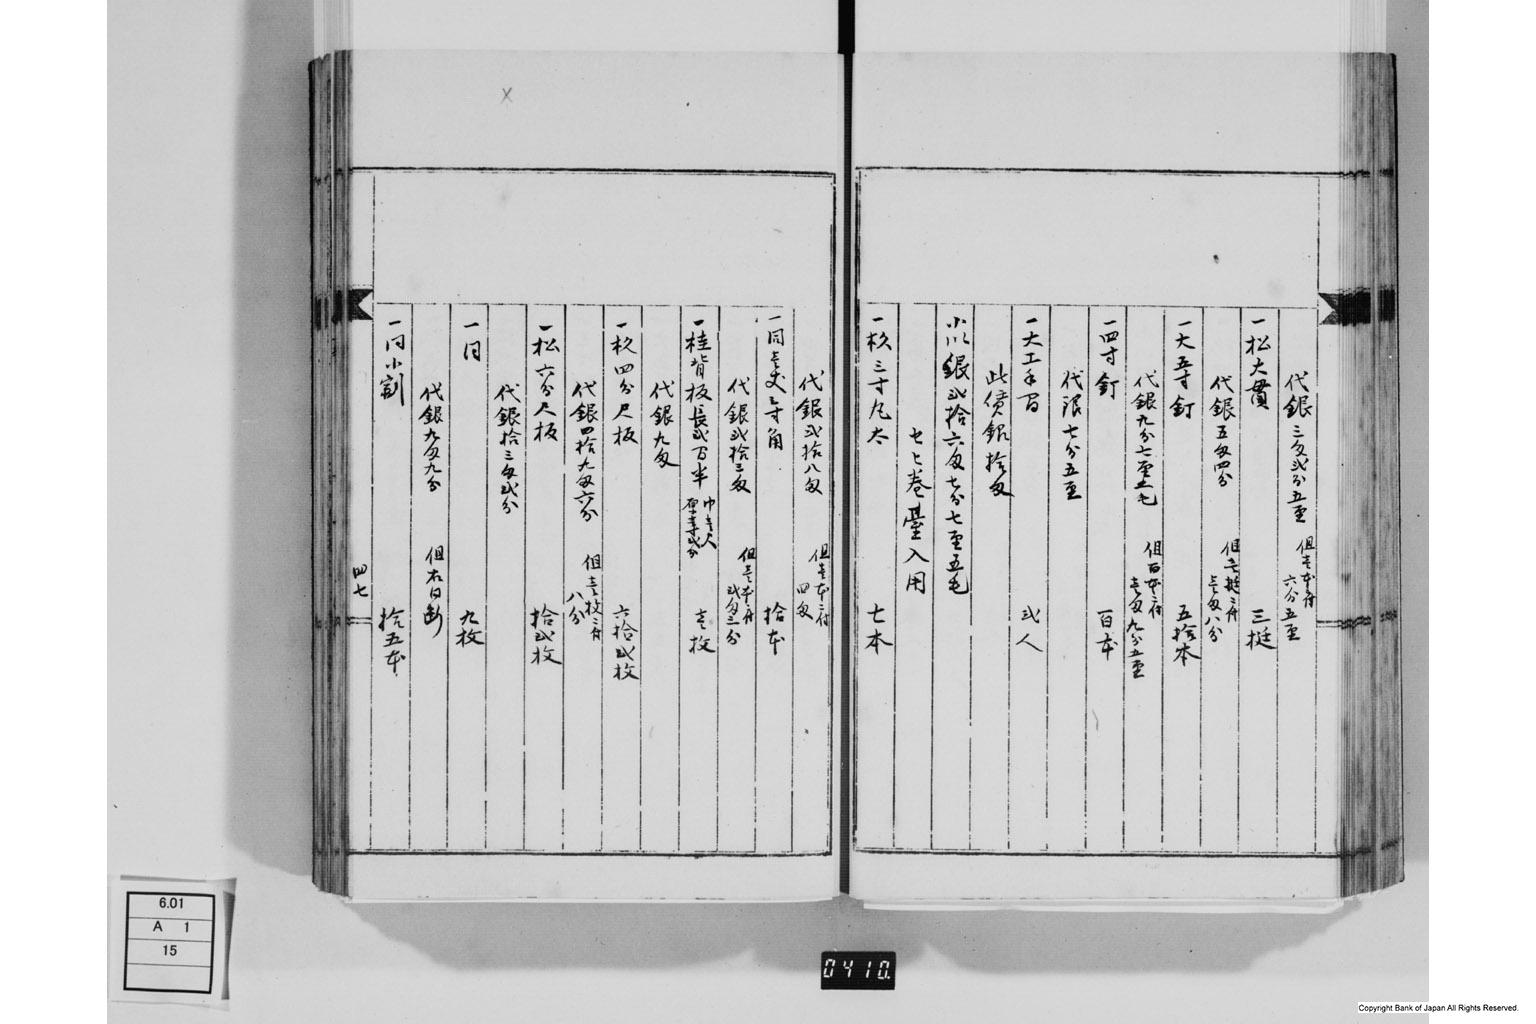 代銀三匁弐分五厘 但壱本ニ付六分五厘
一松大貫 三挺
代銀五匁四分 但壱挺ニ付壱匁八分
一大五寸釘 五拾本
代銀九分七厘五毛 但百本ニ付壱匁九分五厘
一四寸釘 百本
代銀七分五厘
一大工手間 弐人
此賃銀拾匁
小以銀弐拾六匁七分七厘五毛
七七巻臺入用
一杉三寸丸太 七本
代銀弐拾八匁 但壱本ニ付四匁
一同壱丈 寸角 拾本
代銀弐拾三匁 但壱本ニ付弐匁三分
一桂背板長弐 半 巾壱尺厚壱寸弐分 壱枚
代銀九匁
一杉四分尺板 六拾弐枚
代銀四拾九匁六分 但壱枚ニ付八分
一松六分尺板 拾弐枚
代銀拾三匁弐分
一同 九枚
代銀九匁九分 但右同断
一同小割 拾五本
四七
6.01
A 1
15
0410.
Copyright Bank of Japan All Rights Reserved.